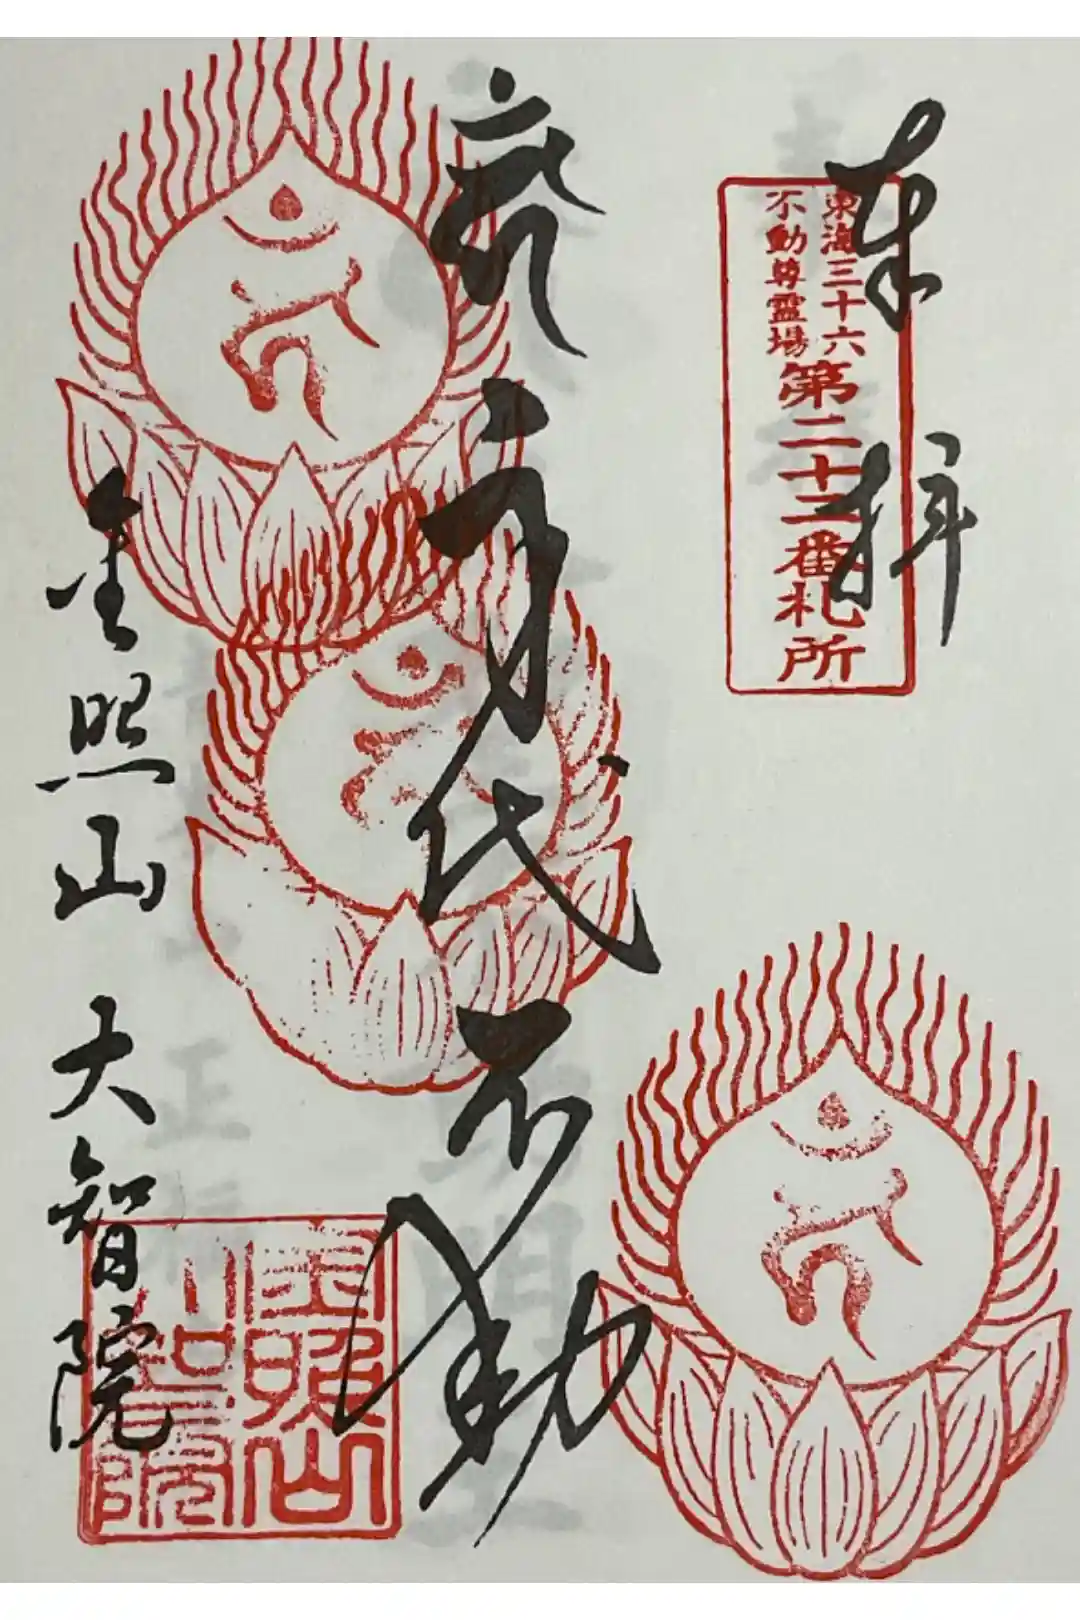 奉拝
東海三十六
不動尊霊場
第二十二番札所
身代不動
金照山 大智院
金照山
大智院